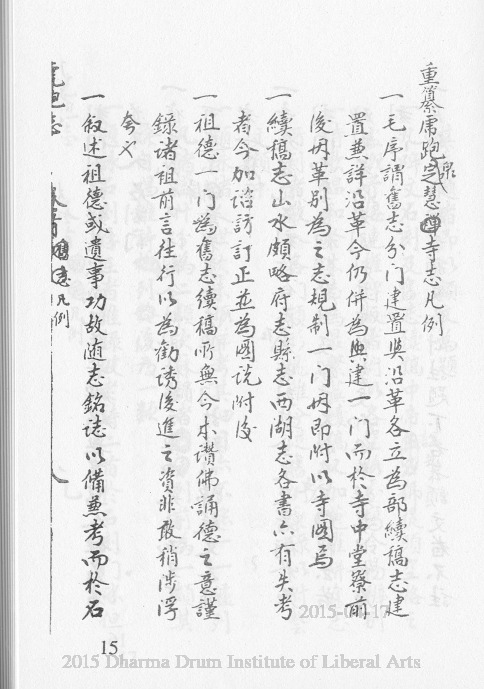 重纂虎跑泉定慧禪寺志凡例
一毛序謂舊志分門建置與沿革各立為部續稿志建
置兼詳沿革今仍併為興建一門而於寺中堂寮前
後因革別為之志規制一門因即附以寺圖焉
一續稿志山水頗略府志縣志西湖志各書亦有失考
者今加諮訪訂正並為圖說附後
一祖德一門為舊志續稿所無今本讚佛誦德之意謹
錄諸祖前言往行以為勸誘後進之資非敢稍涉浮
夸也
一叙述祖德或遺事功故随志銘誌以備兼考而於石
虎跑志
舊志凡例
15
2015 Dharma Drum Institute of Liberal Arts